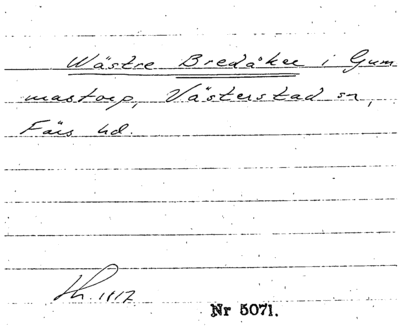 Wästre Bredåker i Gum
mastorp, Västerstad sn,
Färs hd.
Nr 5071.